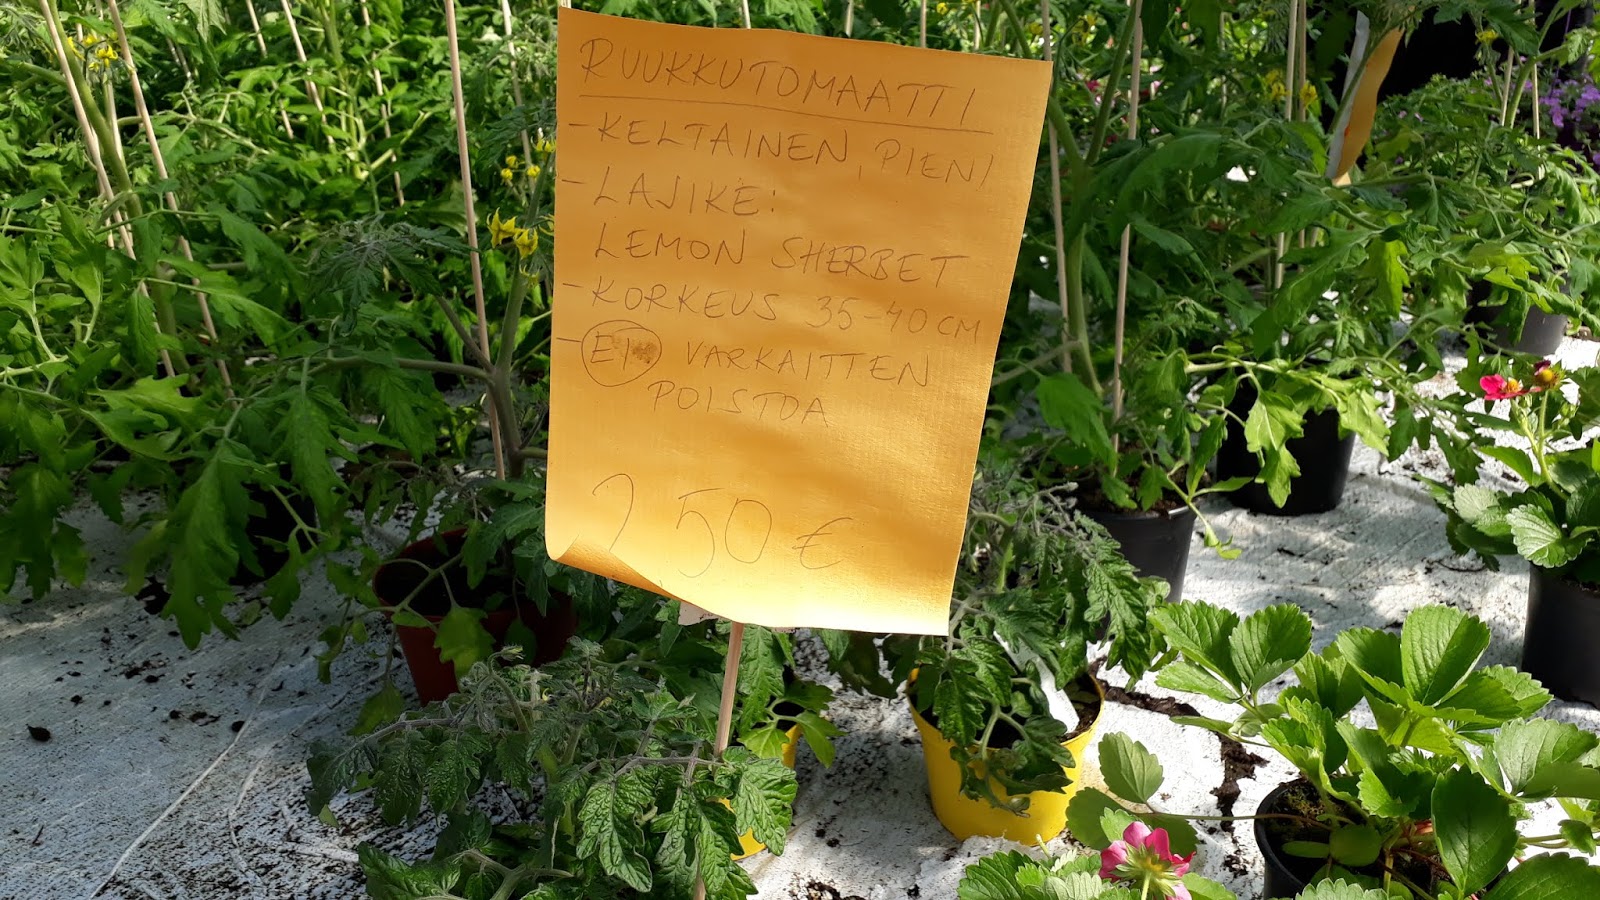 RUUKKUTOMAATTI
- KELTAINEN, PIENI
- LAJIKE:
LEMON SHERBET
- KORKEUS 35-40 CM
- EI VARKAITTEN
POISTOA
2,50 €